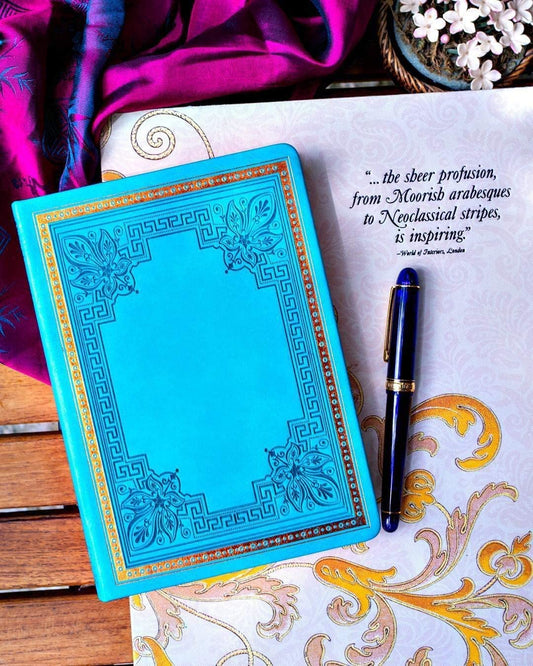 “... the sheer profusion,
from Moorish arabesques
to Neoclassical stripes,
is inspiring.”
—World of Interiors, London